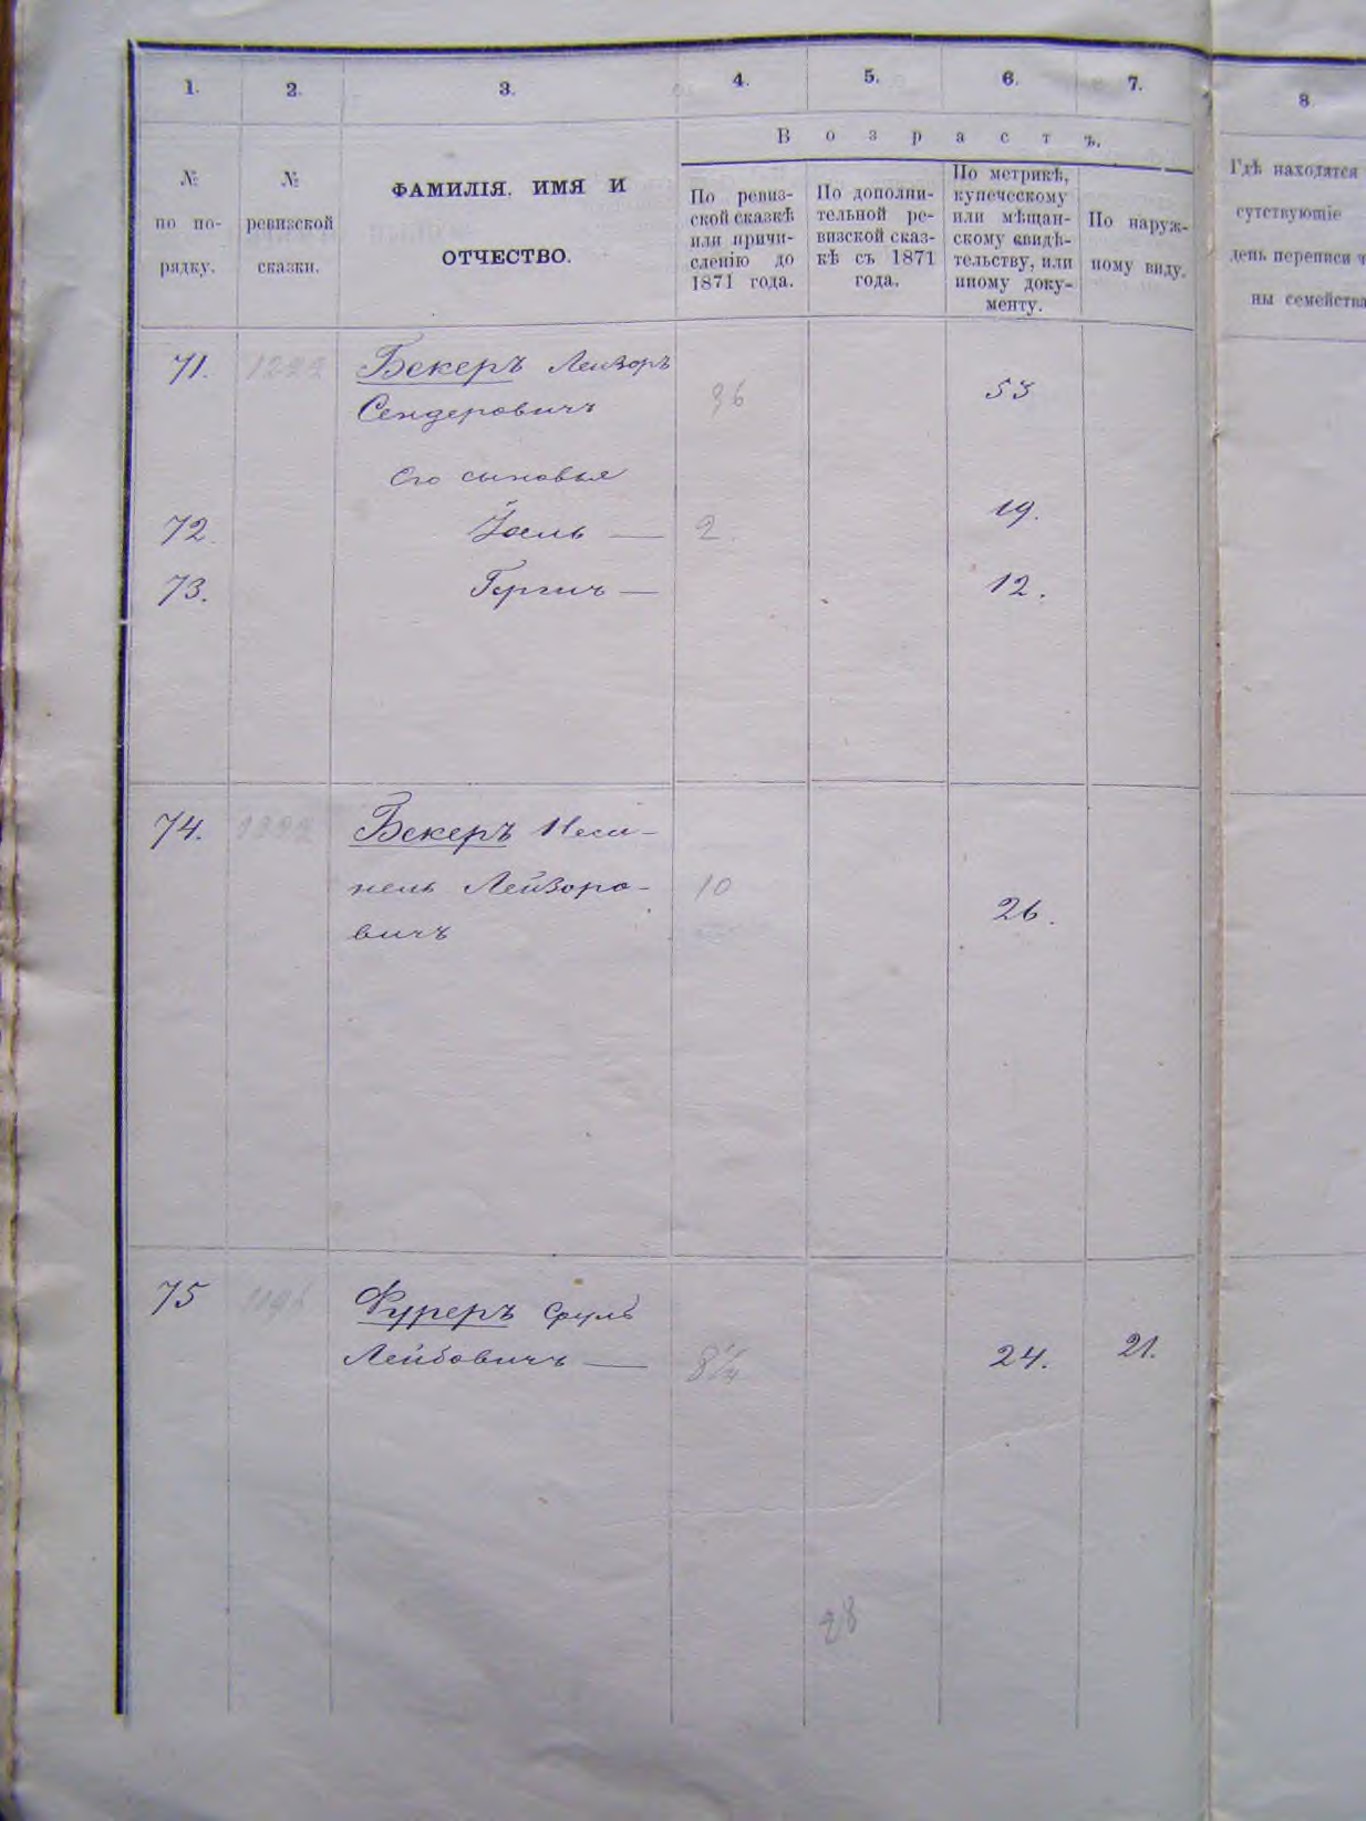 1. 2. 3. 4. 5. 6. 7. 8
Возрастъ.
№
по по-
рядку.
№
ревизской
сказки.
ФАМИЛІЯ, ИМЯ И
ОТЧЕСТВО.
По ревиз-
ской сказкѣ
или причи-
сленію до
1871 года.
По дополни-
тельной ре-
визской сказ-
кѣ съ 1871
года.
По метрикѣ,
купеческому
или мѣщан-
скому свидѣ-
тельству, или
иному доку-
менту.
По наруж-
ному виду.
Гдѣ находятся
сутствующіе
день переписи ч
ны семейства
71. 1222 Бекеръ Лейзоръ
Сендеровичъ 36 53
Его сыновья
72. Іоель — 2. 19.
73. Гершъ — 12.
74. 1222 Бекеръ
нель Лейзоро- 10 26.
вичъ
75 Фуреръ Сруль
Лейбовичъ — 8¼ 24. 21.
28